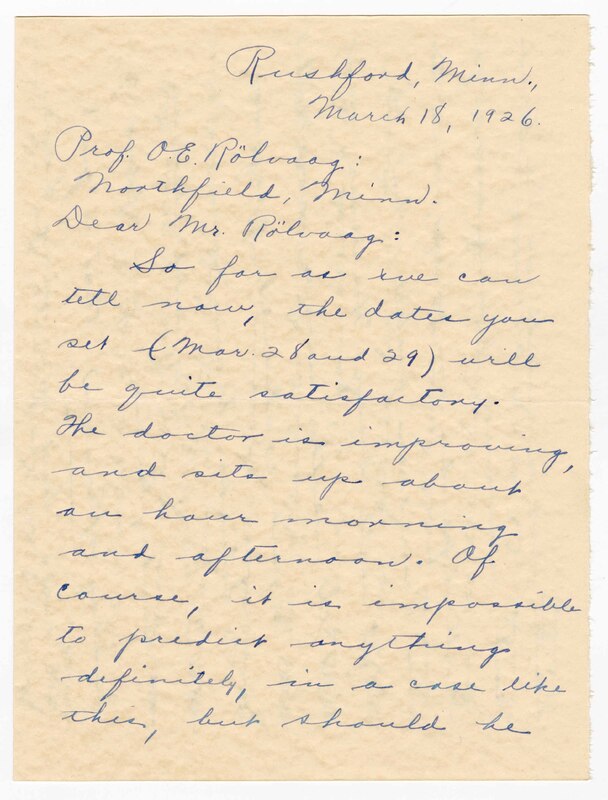 Rushford, Minn.,
March 18, 1926.
Prof. O.E. Rölvaag:
Northfield, Minn.
Dear Mr. Rölvaag:
So far as we can
tell now, the dates you
set (Mar. 28 and 29) will
be quite satisfactory.
The doctor is improving,
and sits up about
an hour morning
and afternoon. Of
course, it is impossible
to predict anything
definitely, in a case like
this, but should he